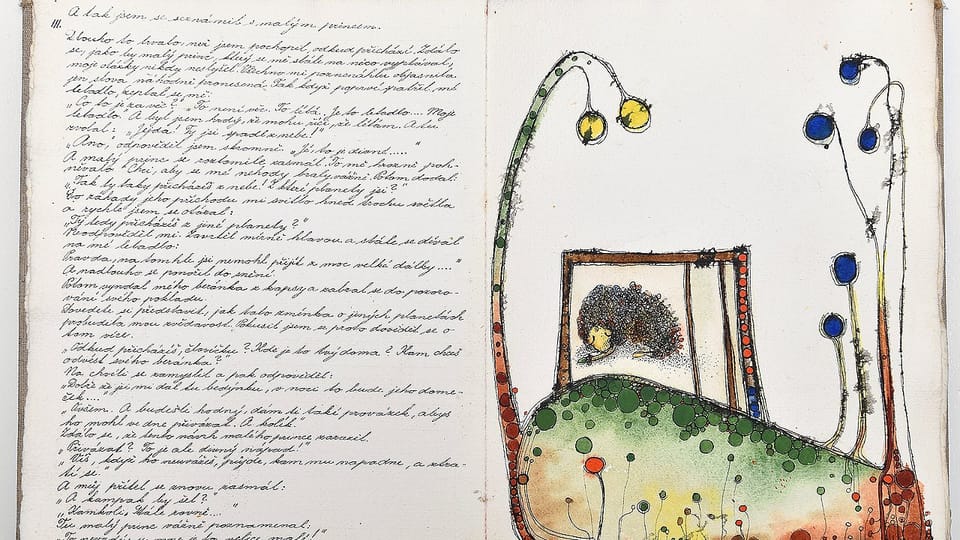 III. A tak jsem se seznámil s malým princem.
Dlouho to trvalo, než jsem pochopil, odkud přichází. Zdálo
se, jako by malý princ, který se mě stále na něco vyptával,
moje otázky nikdy neslyšel. Všechno mi poznenáhlu objasnila
jen slova náhodně pronesená. Tak když poprvé spatřil mé
letadlo, zeptal se mě:
„Co to je za věc?" „To není věc. To létá. Je to letadlo.... Moje
letadlo. A byl jsem hrdý, že mohu říci, že létám. A tu
zvolal: „Jejda! Ty jsi spadl z nebe!"
„Ano, odpověděl jsem skromně. „Jé, to je divné....."
A malý princ se roztomile zasmál. To mě hrozně poh-
něvalo. Chci, aby se mé nehody braly vážně. Potom dodal:
„Tak ty taky přicházíš z nebe! Z které planety jsi?"
Do záhady jeho příchodu mi svitlo hned trochu světla
a rychle jsem se otázal:
„Ty tedy přicházíš z jiné planety?"
Neodpověděl mi. Zavrtěl mírně hlavou a stále se díval
na mé letadlo:
Pravda, na tomhle jsi nemohl přijít z moc velké dálky...."
A nadlouho se ponořil do snění.
Potom vyndal mého beránka z kapsy a zabral se do pozoro-
vání svého pokladu.
Dovedete si představit, jak tato zmínka o jiných planetách
probudila mou zvědavost. Pokusil jsem se proto dovědět se o
tom více.
„Odkud přicházíš, človíčku? Kde je to tvý doma? Kam chceš
odvést svého beránka?"
Na chvíli se zamyslil a pak odpověděl:
„Dobře že jsi mi dal tu bedýnku, v noci to bude jeho dome-
ček...."
„Ovšem. A budeš-li hodný, dám ti také provázek, abys
ho mohl ve dne přivázat. A kolík."
Zdálo se, že tento návrh malého prince zarazil.
„Přivázat? To je ale divný nápad!"
„Víš, když ho neuvážeš, půjde, kam mu napadne, a ztra-
tí se."
A můj přítel se znovu zasmál:
„A kampak by šel?"
„Kamkoli. Stále rovně...."
Tu malý princ vážně poznamenal: